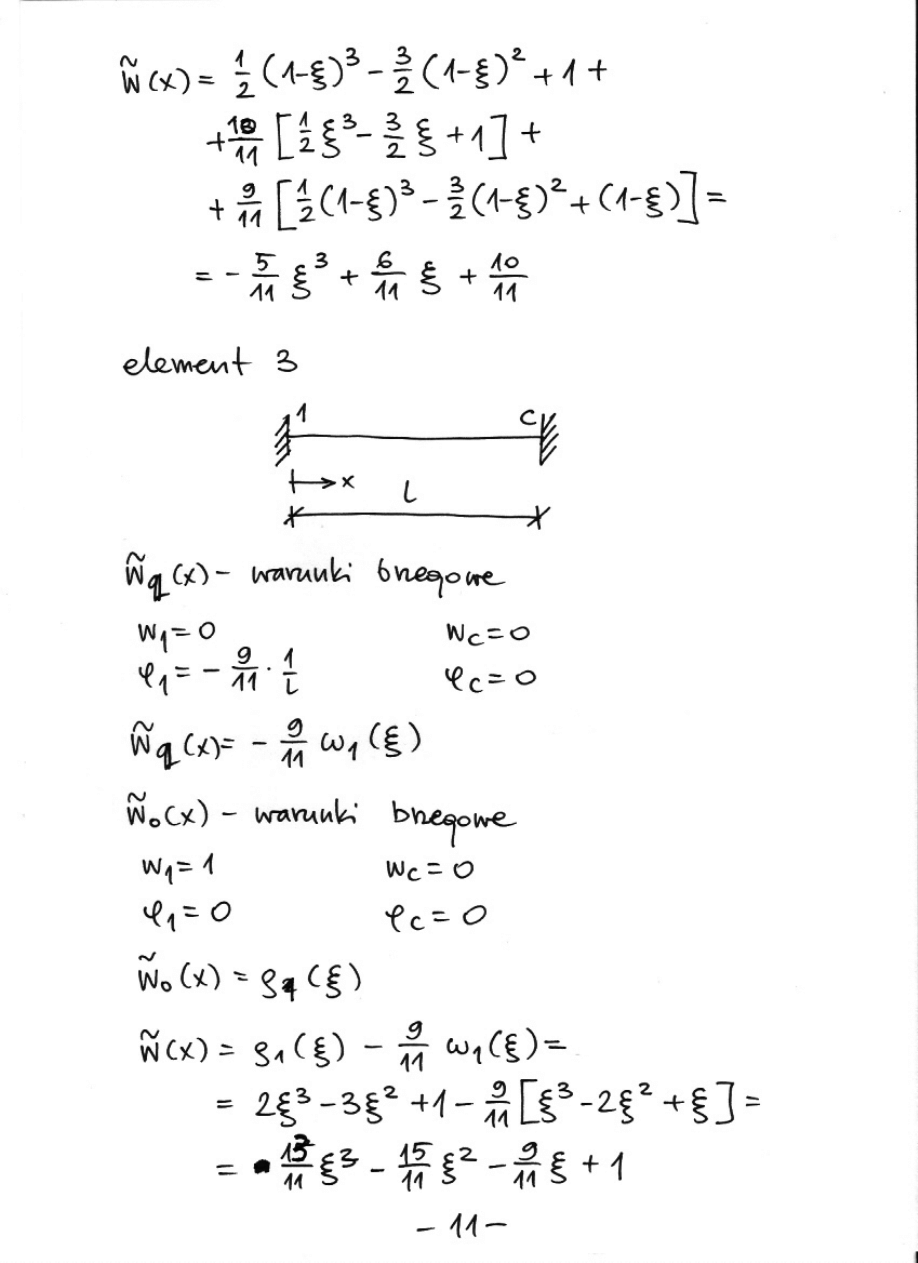 w̃(x) = 1/2 (1-ξ)³ - 3/2 (1-ξ)² + 1 +
+ 10/11 [1/2 ξ³ - 3/2 ξ + 1] +
+ 9/11 [1/2 (1-ξ)³ - 3/2 (1-ξ)² + (1-ξ)] =
= - 5/11 ξ³ + 6/11 ξ + 10/11
element 3
1 C
x L
w̃q(x) - warunki brzegowe
w₁ = 0 wc = 0
φ₁ = - 9/11 · 1/L φc = 0
w̃q(x) = - 9/11 ω₁(ξ)
w̃₀(x) - warunki brzegowe
w₁ = 1 wc = 0
φ₁ = 0 φc = 0
w̃₀(x) = ϱ₁(ξ)
w̃(x) = ϱ₁(ξ) - 9/11 ω₁(ξ) =
= 2ξ³ - 3ξ² + 1 - 9/11 [ξ³ - 2ξ² + ξ] =
= 13/11 ξ³ - 15/11 ξ² - 9/11 ξ + 1
- 11 -